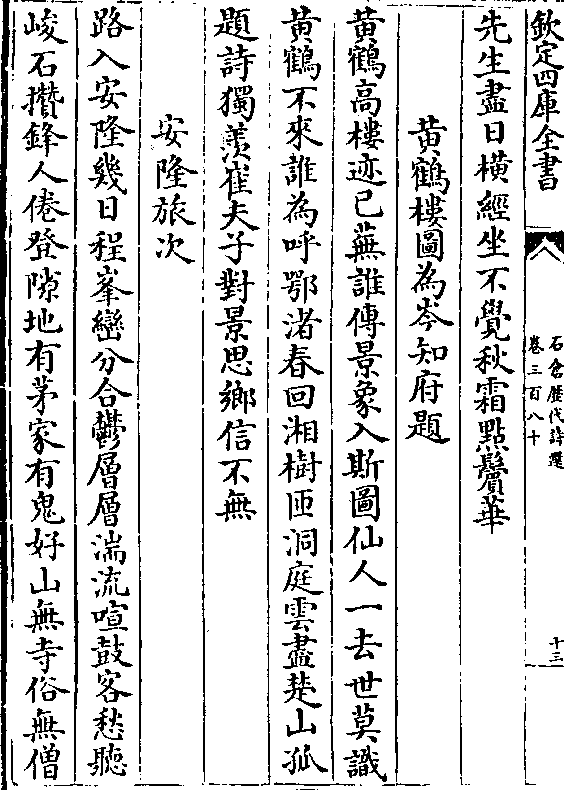 欽定四庫全書
石倉歷代詩選
卷三百八十
十三
先生盡日橫經坐不覺秋霜點鬢華
黄鶴樓圖為岑知府題
黄鶴高樓迹已蕪誰傳景象入斯圖仙人一去世莫識
黄鶴不來誰為呼鄂渚春回湘樹匝洞庭雲盡楚山孤
題詩獨羨崔夫子對景思鄉信不無
安隆旅次
路入安隆幾日程峯巒分合鬱層層湍流喧鼓客愁聽
峻石攢鋒人倦登隙地有茅家有鬼好山無寺俗無僧